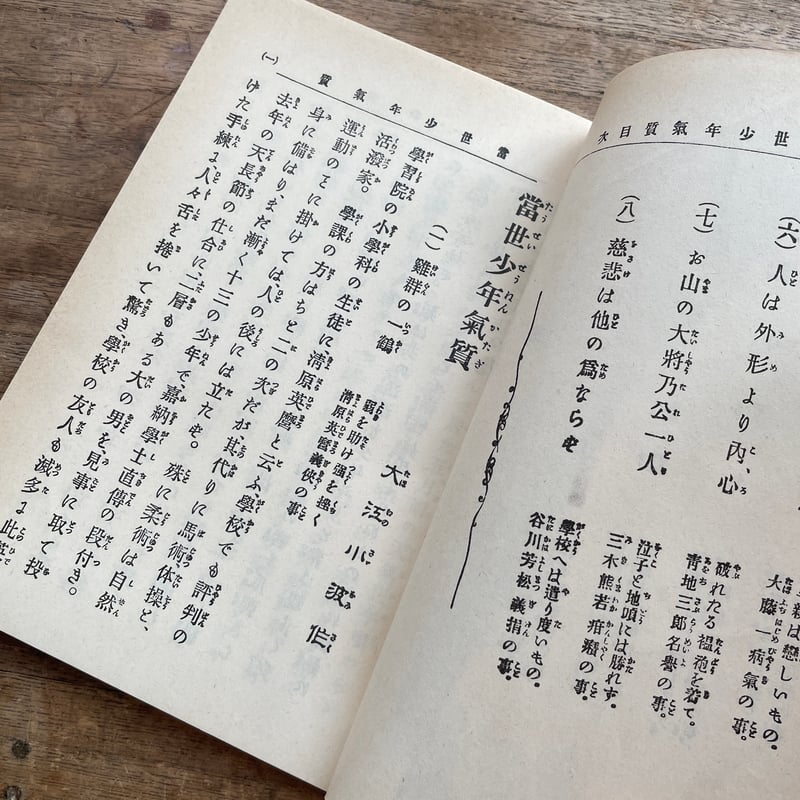 當世少年氣質目次
(六) 人は外形より内心
親は戀しいもの。
大藤一病氣の事。
(七) お山の大將乃公一人
破れたる褞袍を着て。
青地三郎名譽の事。
泣子と地頭には勝れず。
三木熊若疳癪の事。
(八) 慈悲は他の爲ならず
學校へは遣り度いもの。
谷川芳松義捐の事。
當世少年氣質
(一)
當世少年氣質
大江小波作
(一) 雞群の一鶴
弱を助け强を挫く
淸原英麿義俠の事
學習院の小學科の生徒に、淸原英麿と云ふ、學校でも評判の
活潑家。 學課の方はちと二の次だが、其代りに馬術、体操と、
運動のことに掛けては、人の後には立たず。 殊に柔術は自然
身に備はり、まだ漸く十三の少年で、嘉納學士直傳の段付き。
去年の天長節の仕合に、二層もある大の男を、見事に取て投
けた手練に、人々舌を捲いて驚き、學校の友人も滅多に此英